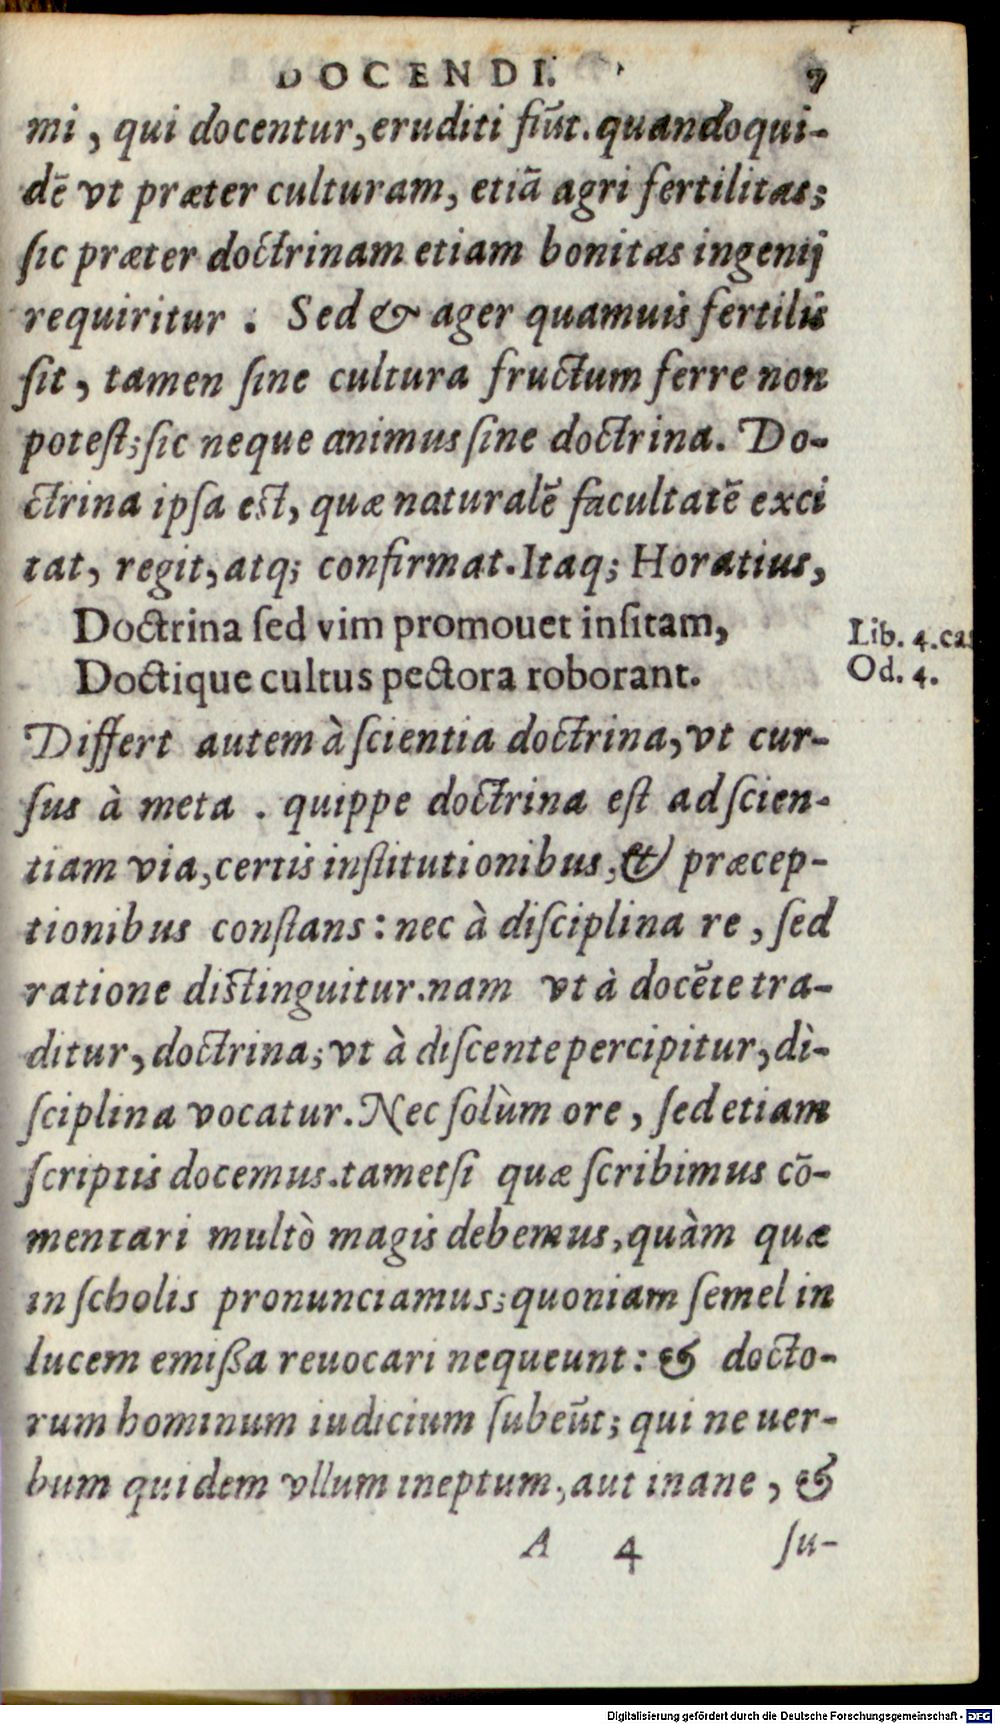 DOCENDI. 7
mi, qui docentur, eruditi fiūt. quandoqui-
dē vt præter culturam, etiā agri fertilitas;
ſic præter doctrinam etiam bonitas ingenij
requiritur. Sed & ager quamuis fertilis
ſit, tamen ſine cultura fructum ferre non
poteſt; ſic neque animus ſine doctrina. Do-
ctrina ipſa eſt, quæ naturalē facultatē exci
tat, regit, atq; confirmat. Itaq; Horatius,
Doctrina ſed vim promouet inſitam,
Doctique cultus pectora roborant.
Lib. 4. ca
Od. 4.
Differt autem à ſcientia doctrina, vt cur-
ſus à meta. quippe doctrina eſt ad ſcien-
tiam via, certis inſtitutionibus, & præcep-
tionibus conſtans: nec à diſciplina re, ſed
ratione diſtinguitur. nam vt à docēte tra-
ditur, doctrina; vt à diſcente percipitur, dì-
ſciplina vocatur. Nec ſolùm ore, ſed etiam
ſcriptis docemus. tametſi quæ ſcribimus cō-
mentari multò magis debemus, quàm quæ
in ſcholis pronunciamus; quoniam ſemel in
lucem emiſſa reuocari nequeunt: & docto-
rum hominum iudicium ſubeūt; qui ne uer-
bum quidem vllum ineptum, aut inane, &
A 4 ſu-
Digitalisierung gefördert durch die Deutsche Forschungsgemeinschaft - DFG